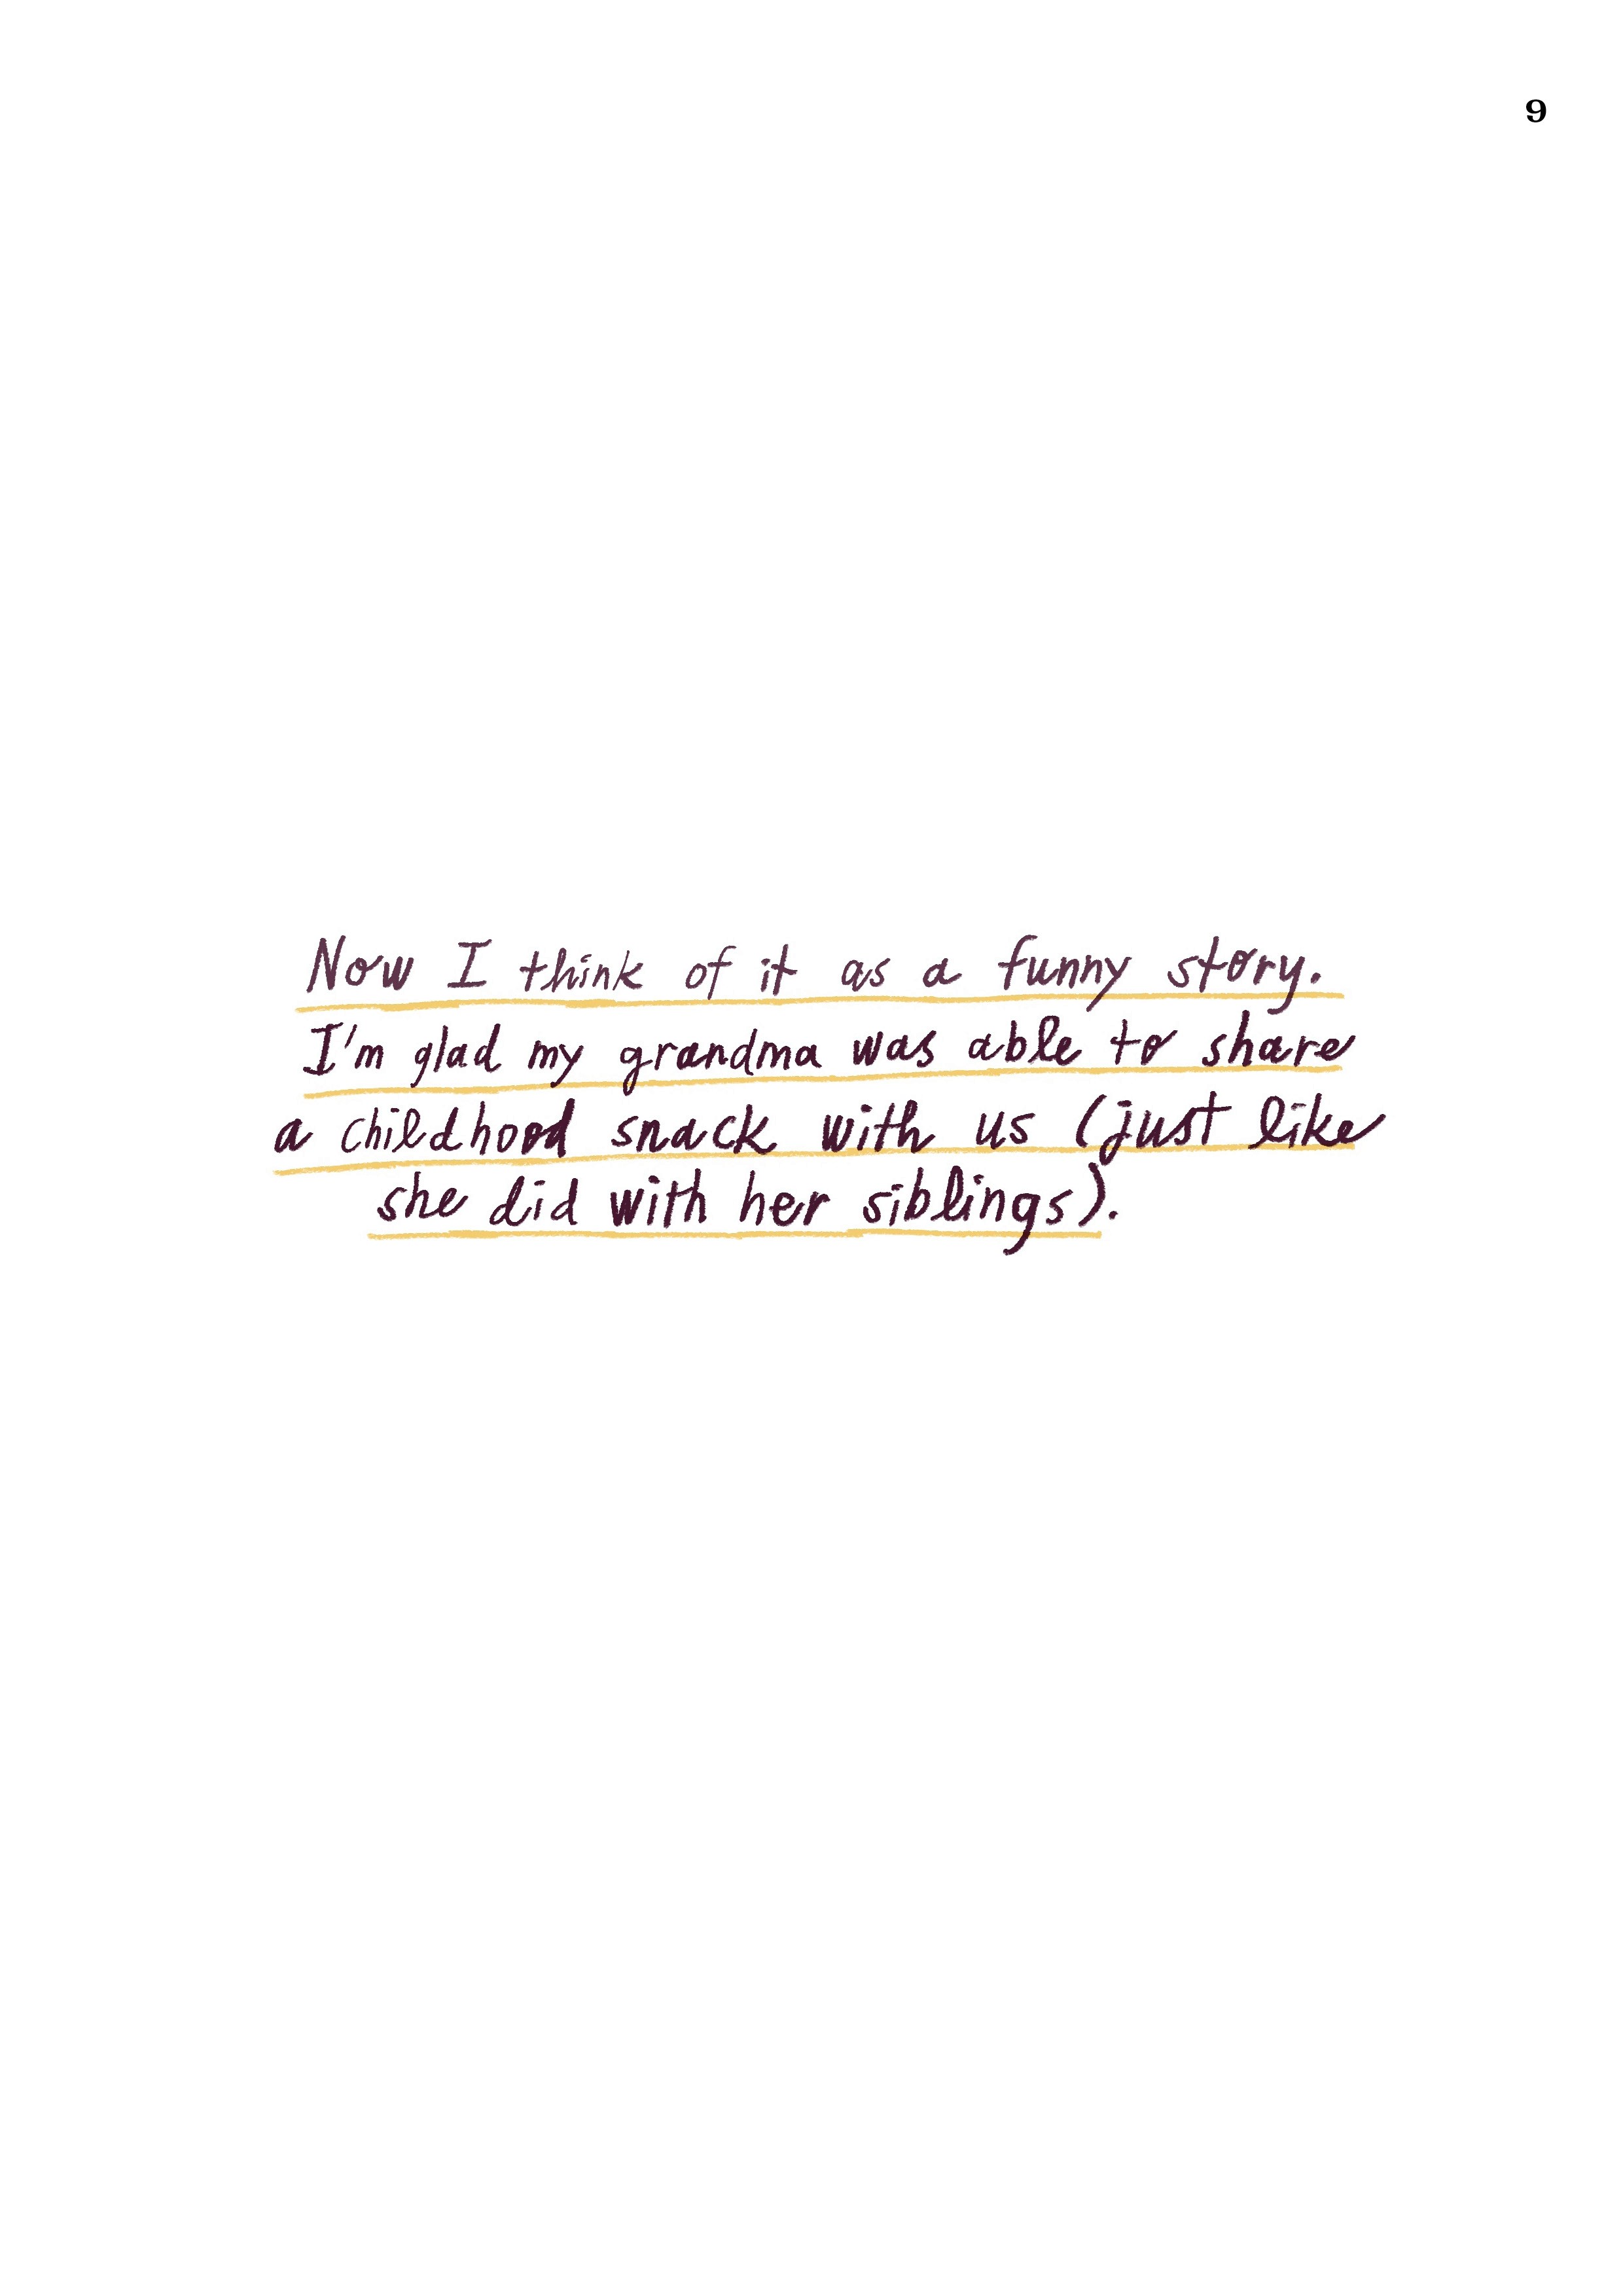 9
Now I think of it as a funny story.
I'm glad my grandma was able to share
a childhood snack with us (just like
she did with her siblings).